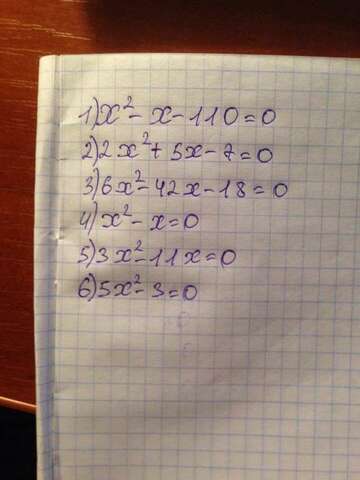 1) x² - x - 110 = 0
2) 2x² + 5x - 7 = 0
3) 6x² - 42x - 18 = 0
4) x² - x = 0
5) 3x² - 11x = 0
6) 5x² - 3 = 0